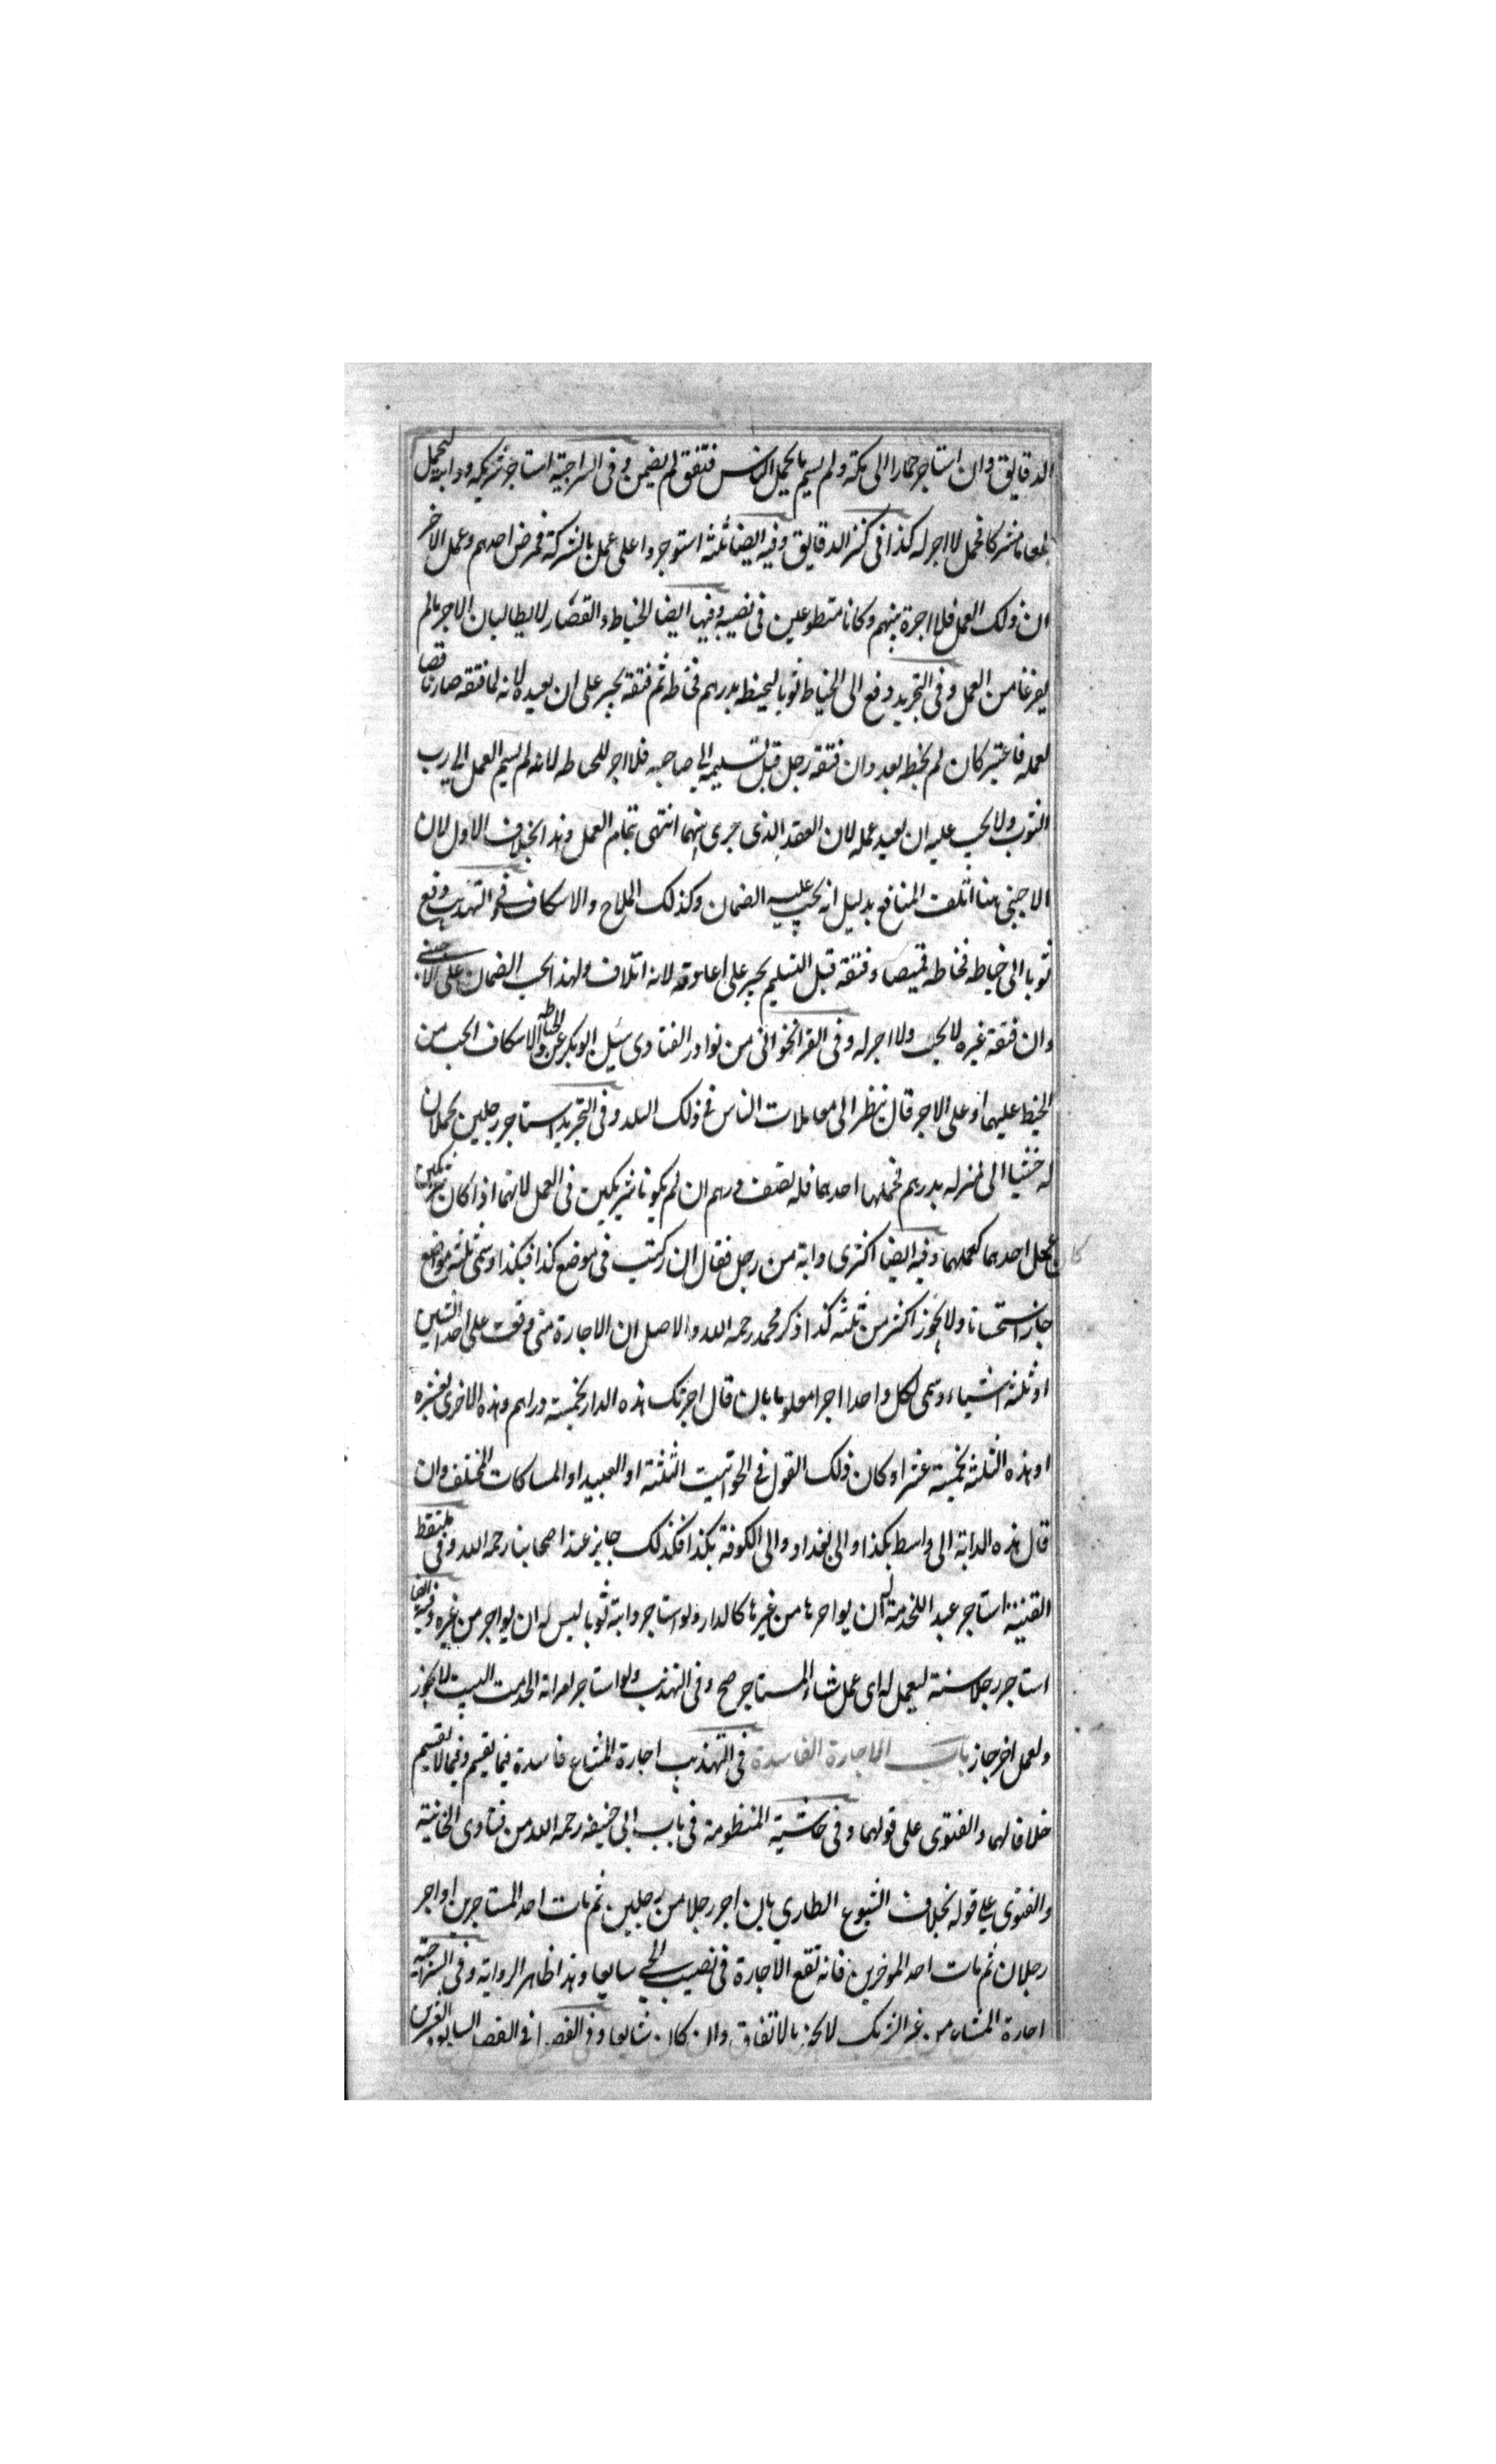 الدقايق وان استاجر حمارا الى مكة ولم يسم ما يحمل الناس فنفق لم يضمن وفى السراجية استاجر شريكه ودابته ليحمل
طعاما مشتركا فحمل لا اجر له كذا فى كنز الدقايق وفيه ايضا ثلثة استوجروا على عمل بالشركة فمرض احدهم وعمل الاخر
ان ذلك العمل فلا اجرة بينهم وكانا متطوعين فى نصيبه وفيها ايضا الخياط والقصار لا يطالبان الاجر ما لم
يفرغا من العمل وفى التجريد دفع الى الخياط ثوبا ليخيطه بدرهم فخاطه ثم فتقه يجبر على ان يعيده لانه لما فتقه صار ناقضا
لعمله فاعتبر كان لم يخط بعد وان فتقه رجل قبل تسليمه الى صاحبه فلا اجر للخياط لانه لم يسلم العمل الى رب
الثوب ولا يجب عليه ان يعيد عمله لان العقد الذى جرى بينهما انتهى بتمام العمل وهذا بخلاف الاول لان
الاجنبى هنا اتلف المنافع بدليل انه يجب عليه الضمان وكذلك الملاح والاسكاف فى التهذيب دفع
ثوبا الى خياط فخاطه قميصا وفتقه قبل التسليم يجبر على اعادته لانه اتلاف ولهذا يجب الضمان على الاجنبى
وان فتقه غيره لا يجب ولا اجر له وفى القراخوانى من نوادر الفتاوى سئل ابو بكر عن الخياط والاسكاف ايجب من
الخيط عليهما او على الاجر قال ينظر الى معاملات الناس فى ذلك البلد وفى التجريد استاجر رجلين يحملان
له خشبا الى منزله بدرهم فحملها احدهما فله نصف درهم ان لم يكونا شريكين فى العمل لانهما اذا كان شريكين
كان عمل احدهما كعملهما وفيه ايضا اكترى دابة من رجل فقال ان ركبت فى موضع كذا فبكذا وسمى ثلثة مواضع
جاز استحسانا ولا يجوز اكثر من ثلثة كذا ذكر محمد رحمه الله والاصل ان الاجارة متى وقعت على احد الشيئين
او ثلثة اشياء وسمى لكل واحد اجرا معلوما بان قال اجرتك هذه الدار بخمسة دراهم وهذه الاخرى بعشرة
او هذه الثلثة بخمسة عشر او كان ذلك القول فى الحوانيت الثلثة او العبيد او المسافات المختلف وان
قال هذه الدابة الى واسط بكذا والى بغداد والى الكوفة بكذا فكذلك جايز عند اصحابنا رحمه الله وفى ملتقط
القنية استاجر عبد اللخدمة له ان يواجرها من غيرها كالدار ولو استاجر دابة ثوبا ليس له ان يواجر من غيره وفيه ايضا
استاجر رجلا سنة ليعمل له اى عمل شاء المستاجر صح وفى التهذيب ولو استاجر امراته لخدمت البيت لا يجوز
ولعمل اخر جاز باب الاجارة الفاسدة فى التهذيب اجارة المشاع فاسدة فيما يقسم وفيما لا يقسم
خلافا لهما والفتوى على قولهما وفى حاشية المنظومة فى باب ابى حنيفة رحمه الله من فتاوى الخانية
والفتوى على قوله بخلاف الشيوع الطارى بان اجر رجلا من رجلين ثم مات احد المستاجرين او اجر
رجلان ثم مات احد الموخرين فانه تقع الاجارة فى نصيب الحى شايعا وهذا ظاهر الرواية وفى السراجية
اجارة المشاع من غير الشريك لا يجوز بالاتفاق وان كان شايعا وفى الفصول فى الفصل السابع